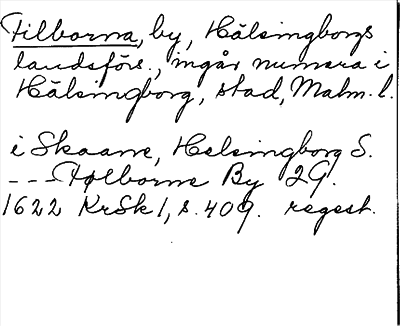 Filborna, by, Hälsingborgs
landsförs., ingår numera i
Hälsingborg, stad, Malm. l.
i Skaane, Helsingborg S.
--- Følborne By 2G.
1622 KrSk 1, s. 409. regest.